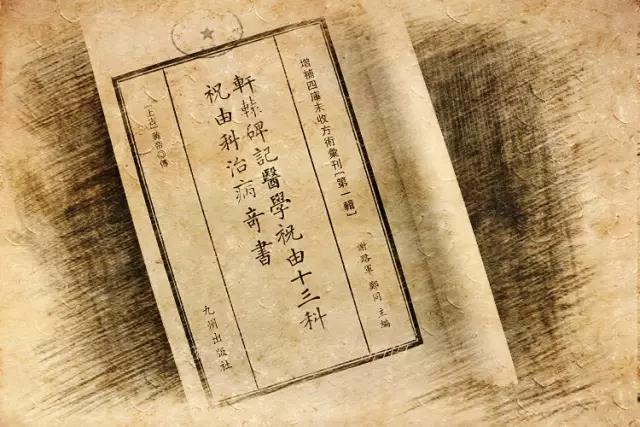 增補四庫未收方術彙刊［第一輯］
謝路軍 鄭同 主編
軒轅碑記醫學祝由十三科
祝由科治病奇書
［上古］黃帝◎傳
九州出版社